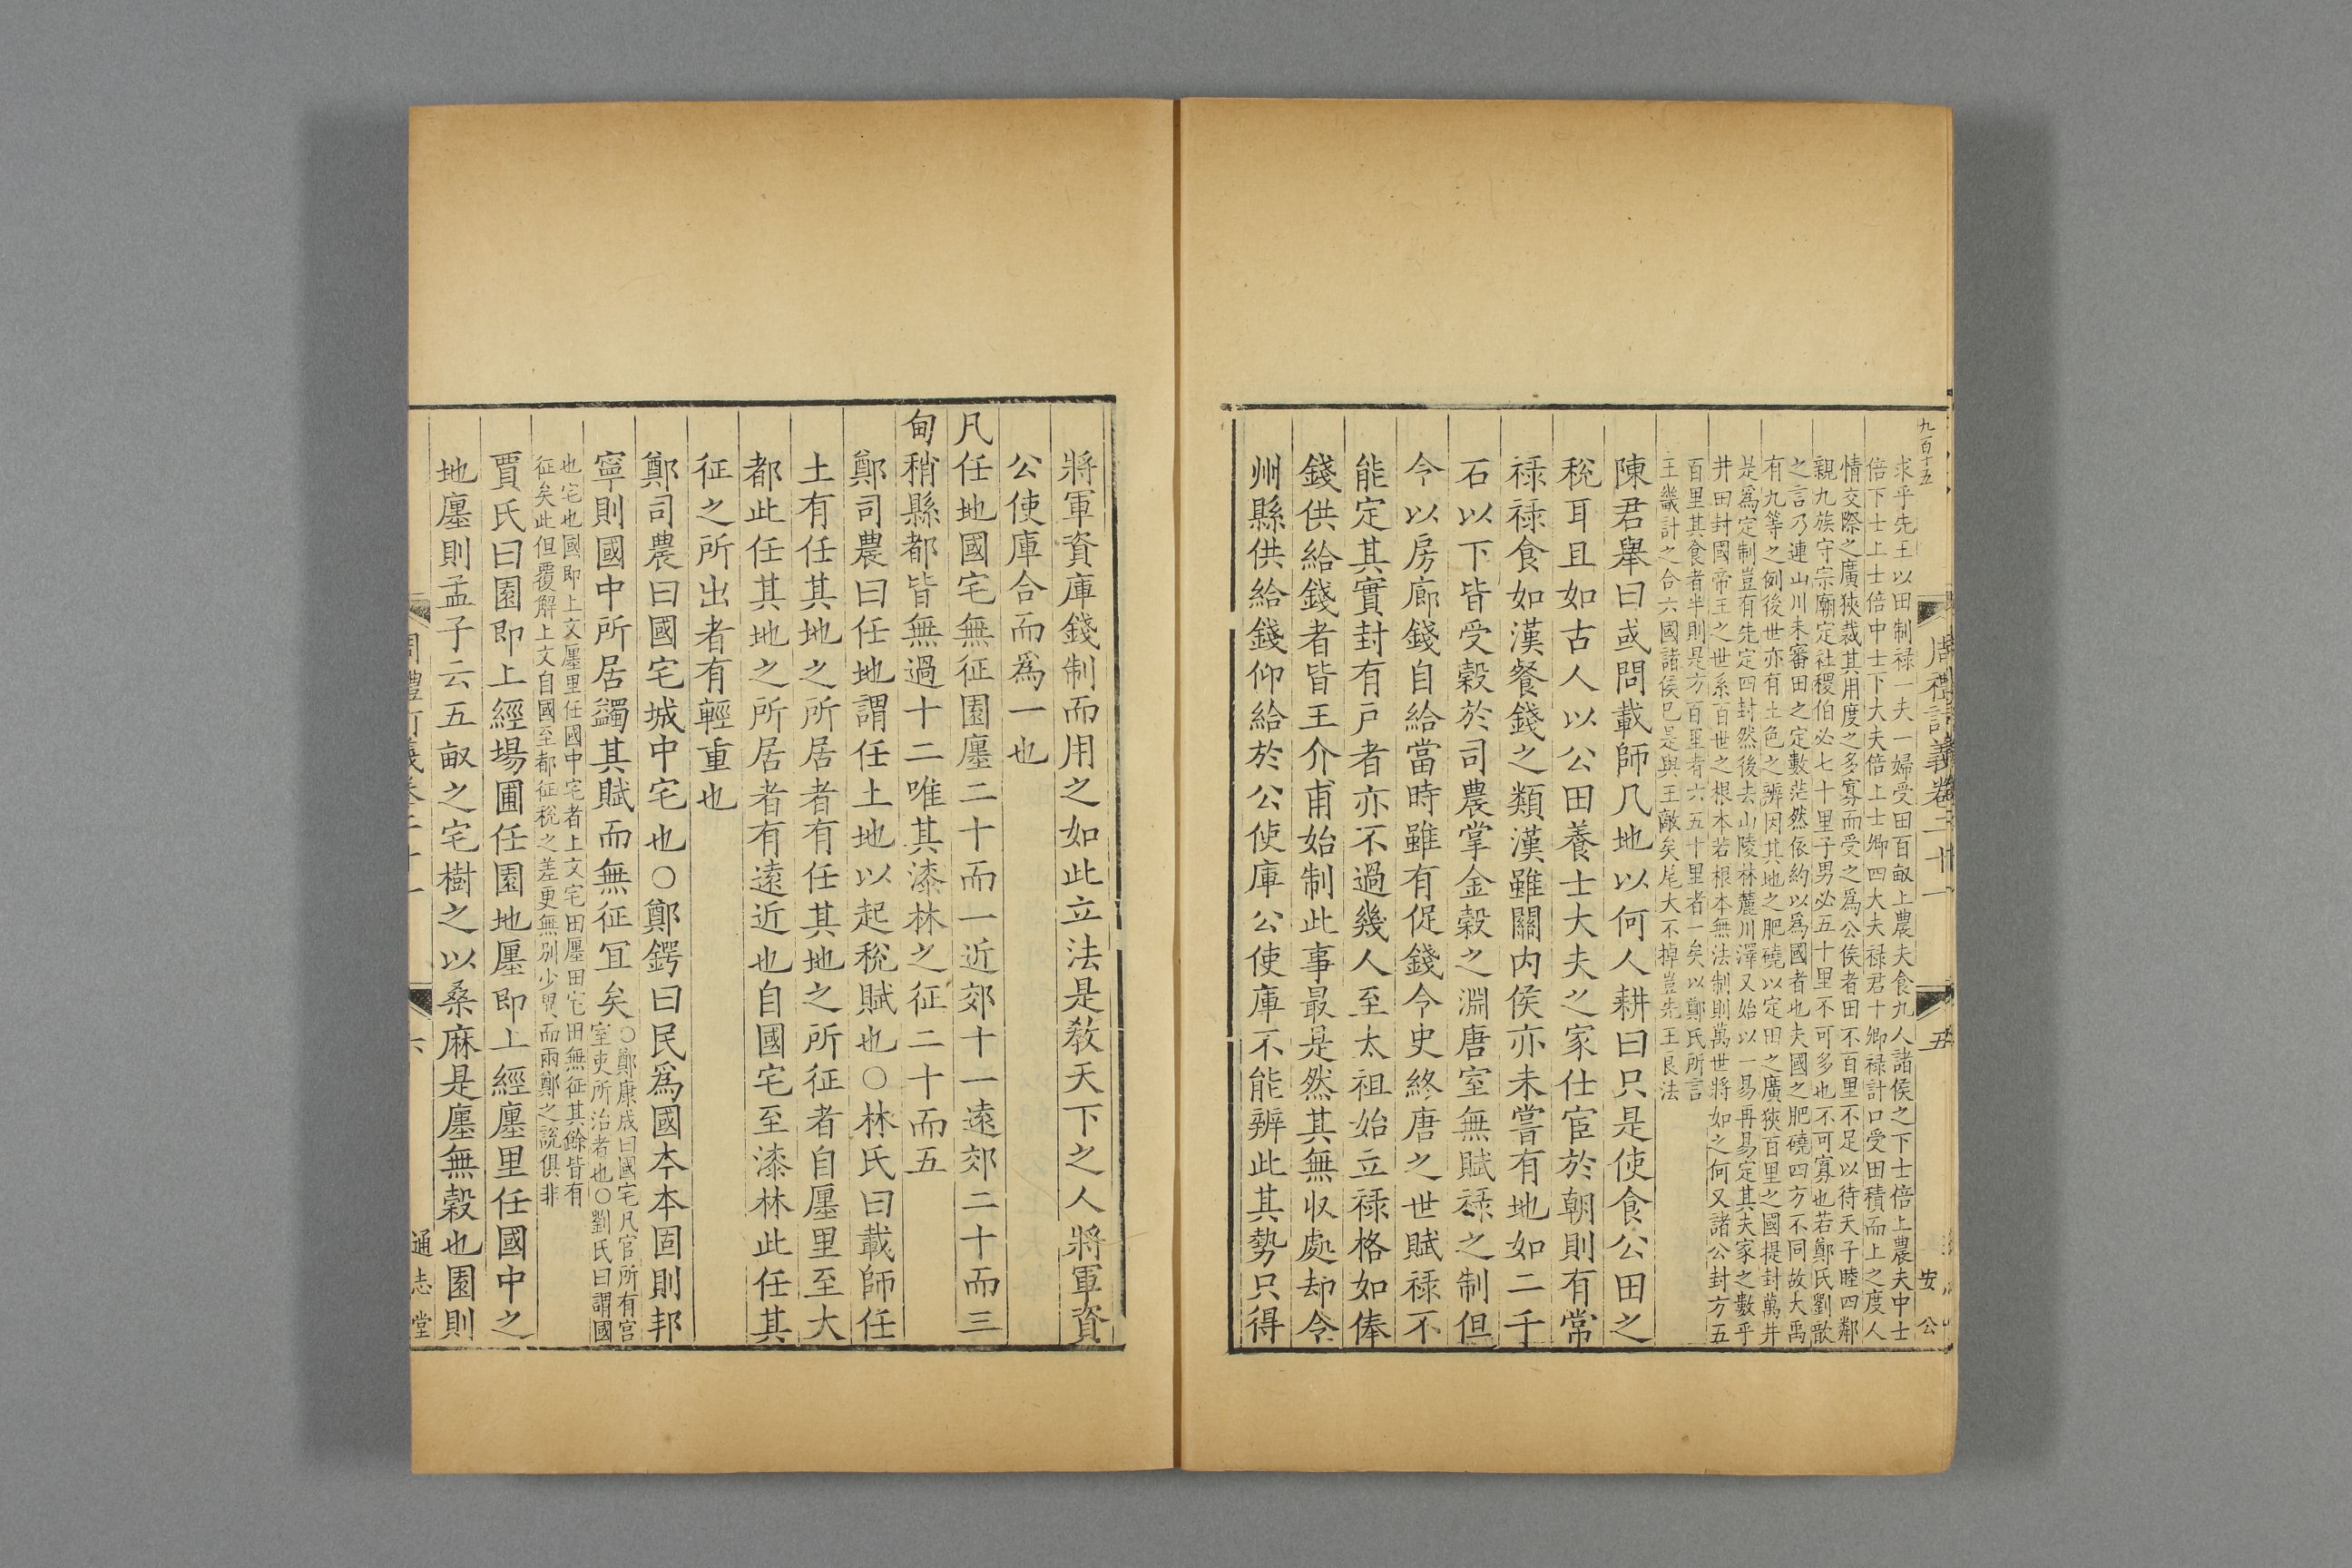 九百十五
周禮訂義卷二十一
五
安
公
求乎先王以田制祿一夫一婦受田百畝上農夫食九人諸侯之下士倍上農夫中士
倍下士上士倍中士下大夫倍上士卿四大夫祿君十卿祿計口受田積而上之度人
情交際之廣狹裁其用度之多寡而受之爲公侯者田不百里不足以待天子睦四鄰
親九族守宗廟定社稷伯必七十里子男必五十里不可多也不可寡也若鄭氏劉歆
之言乃連山川未審田之定數茫然依約以爲國者也夫國之肥磽四方不同故大禹
有九等之例後世亦有土色之辨因其地之肥磽以定田之廣狹百里之國提封萬井
是爲定制豈有先定四封然後去山陵林麓川澤又始以一易再易定其夫家之數乎
井田封國帝王之世系百世之根本若根本無法制則萬世將如之何又諸公封方五
百里其食者半則是方百里者六五十里者一矣以鄭氏所言
王畿計之合六國諸侯已是與王敵矣尾大不掉豈先王良法
陳君舉曰或問載師凡地以何人耕曰只是使食公田之
稅耳且如古人以公田養士大夫之家仕宦於朝則有常
祿祿食如漢餐錢之類漢雖關內侯亦未嘗有地如二千
石以下皆受穀於司農掌金穀之淵唐室無賦祿之制但
今以房廊錢自給當時雖有促錢令史終唐之世賦祿不
能定其實封有戶者亦不過幾人至太祖始立祿格如俸
錢供給錢者皆王介甫始制此事最是然其無収處却令
州縣供給錢仰給於公使庫公使庫不能辨此其勢只得
將軍資庫錢制而用之如此立法是敎天下之人將軍資
公使庫合而爲一也
凡任地國宅無征園廛二十而一近郊十一遠郊二十而三
甸稍縣都皆無過十二唯其漆林之征二十而五
鄭司農曰任地謂任土地以起稅賦也○林氏曰載師任
土有任其地之所居者有任其地之所征者自廛里至大
都此任其地之所居者有遠近也自國宅至漆林此任其
征之所出者有輕重也
鄭司農曰國宅城中宅也○鄭鍔曰民爲國本本固則邦
寧則國中所居蠲其賦而無征宜矣○鄭康成曰國宅凡官所有宮
室吏所治者也○劉氏曰謂國
也宅也國即上文廛里任國中宅者上文宅田廛田宅田無征其餘皆有
征矣此但覆解上文自國至都征稅之差更無別少異而兩鄭之說俱非
賈氏曰園即上經場圃任園地廛即上經廛里任國中之
地廛則孟子云五畝之宅樹之以桑麻是廛無穀也園則
六
通志堂